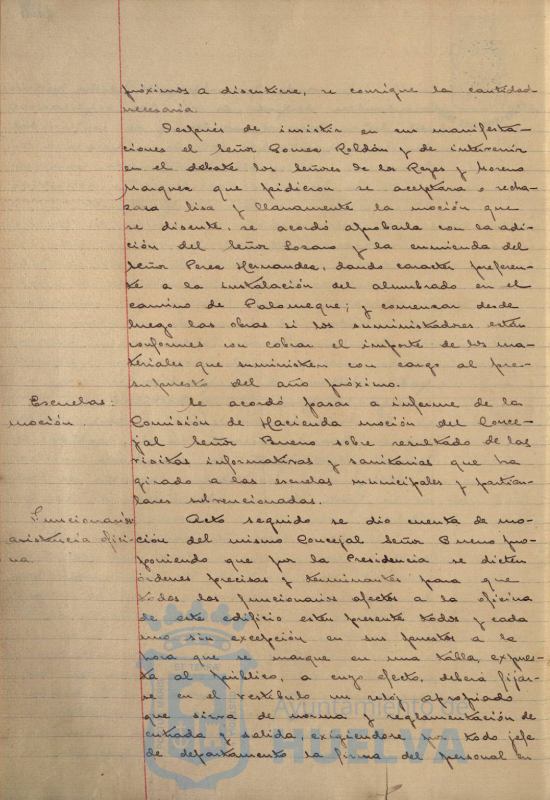 próximos a discutirse, se consigne la cantidad
necesaria.
Después de insistir en sus manifesta-
ciones el Señor Gomez Roldán y de intervenir
en el debate los Señores de los Reyes y Moreno
Marquez que pidieron se aceptara o recha-
zara lisa y llanamente la moción que
se discute, se acordó aprobarla con la adi-
ción del Señor Lozano y la enmienda del
Señor Perez Hernandez, dando caracter preferen-
te a la instalación del alumbrado en el
camino de Palomeque; y comenzar desde
luego las obras si los suministradores están
conformes con cobrar el importe de los ma-
teriales que suministren con cargo al pre-
supuesto del año próximo.
Escuelas:
moción.
Se acordó pasar a informe de la
Comisión de Hacienda moción del Conce-
jal Señor Bueno sobre resultado de las
visitas informativas y sanitarias que ha
girado a las escuelas municipales y particu-
lares subvencionadas.
Funcionarios
asistencia ofici-
na.
Acto seguido se dio cuenta de mo-
ción del mismo Concejal Señor Bueno pro-
poniendo que por la Presidencia se dicten
órdenes precisas y terminantes para que
todos los funcionarios afectos a la oficina
de este edificio estén presente todos y cada
uno sin excepción en sus puestos a la
hora que se marque en una tabla expues-
ta al público, a cuyo efecto, deberá fijar-
se en el vestíbulo un reloj apropiado
que sirva de norma y reglamentación de
entrada y salida, exigiendose por todo jefe
de departamento la firma del personal en
Ayuntamiento de
HUELVA